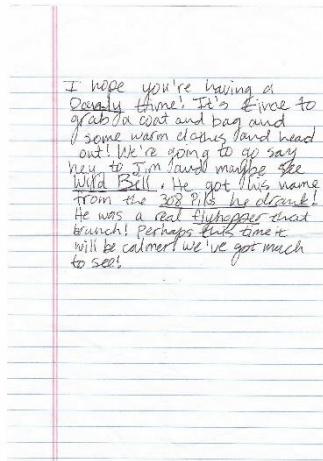 I hope you're having a
Dandy thime! It's time to
grab a coat and bag and
some warm clothes and head
out! We're going to go say
hey to Jim and maybe see
Wild Bill. He got his name
from the 308 Pils he drank!
He was a real flyhopper that
brunch! Perhaps this time it
will be calmer! we've got much
to see!